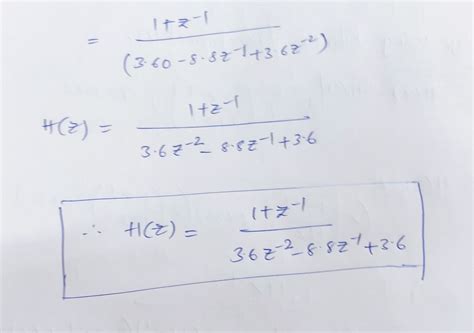 = 1+z⁻¹ / (3.60-8.8z⁻¹+3.6z⁻²)
H(z) = 1+z⁻¹ / 3.6z⁻²-8.8z⁻¹+3.6
∴ H(z) = 1+z⁻¹ / 3.6z⁻²-8.8z⁻¹+3.6